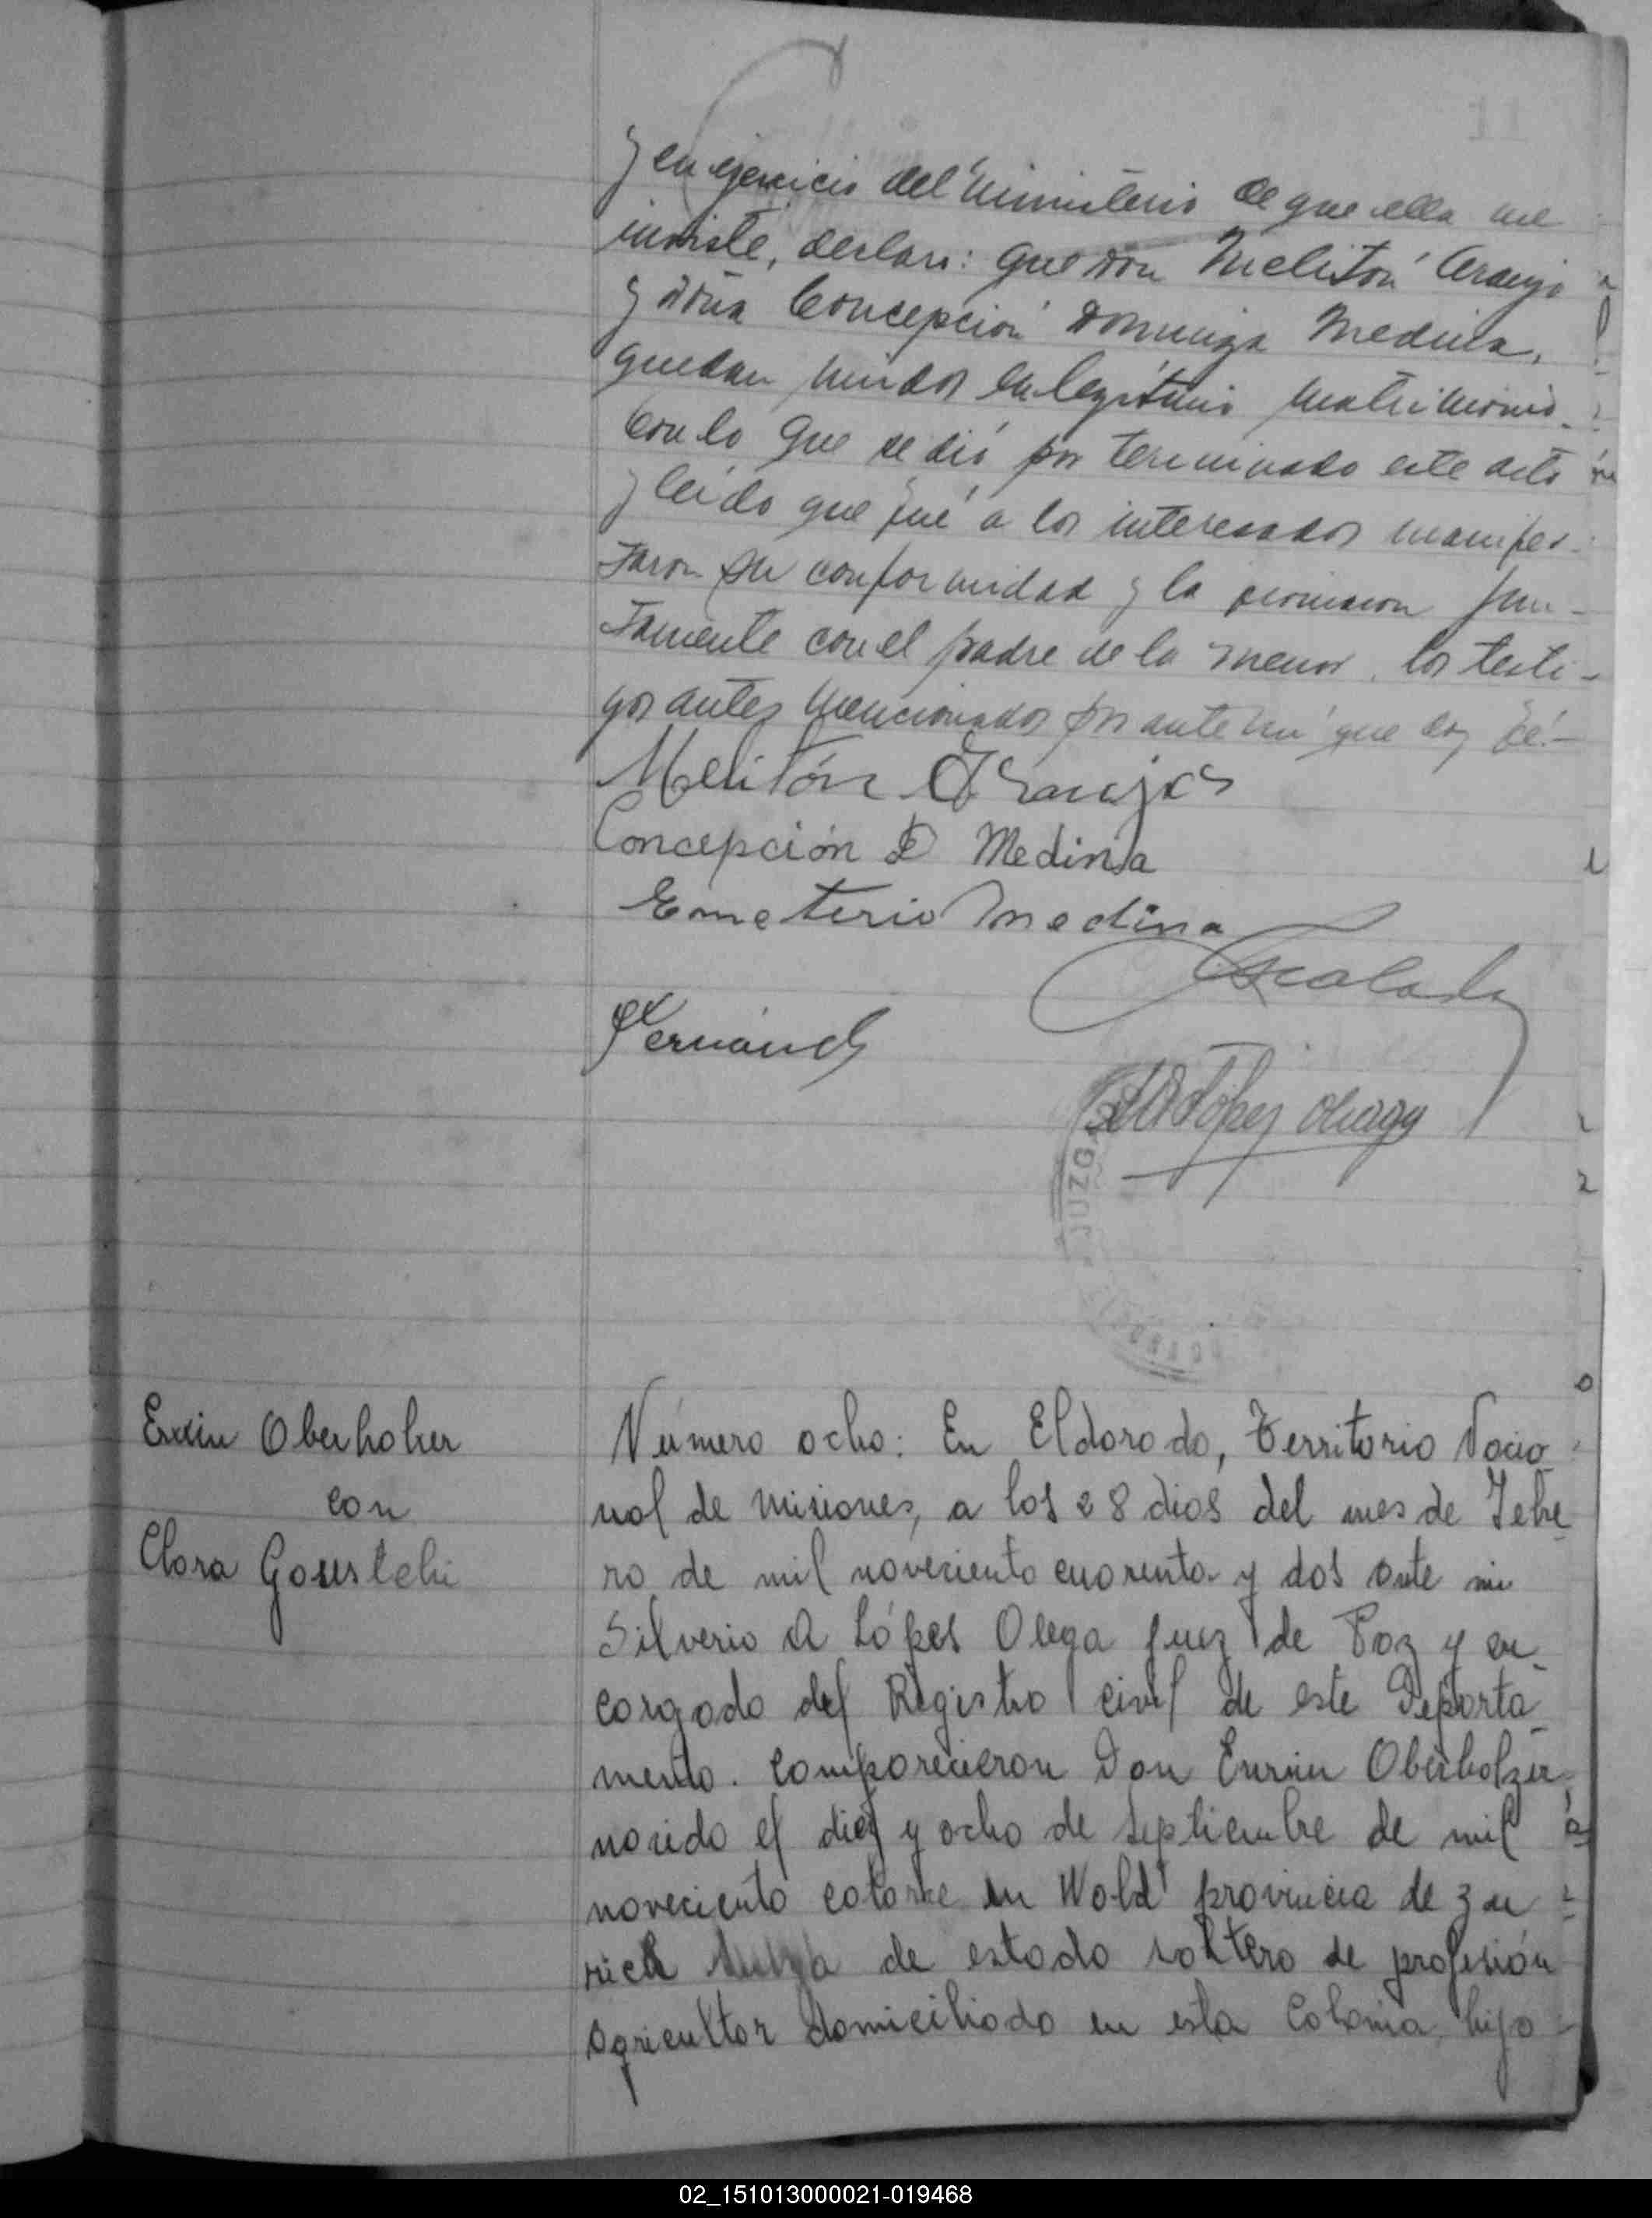 y en ejercicio del ministerio de que ella me
inviste, declaro: que don Melitón Araujo
y doña Concepción Dominga Medina,
quedan unidos en legítimo matrimonio.
Con lo que se dió por terminado este acto
y leído que fué a los interesados manifes-
taron su conformidad y la firmaron jun-
tamente con el padre de la menor, los testi-
gos antes mencionados por ante mí que doy fé.-
Melitón Araujos
Concepción D Medina
Emeterio Medina
Escalada
Fernández
López Olaga
JUZG
Erwin Oberholzer
con
Clara
Número ocho: En Eldorado, Territorio Nacio
nal de Misiones, a los 28 dias del mes de Febre
ro de mil noveciento cuarenta y dos ante mi
Silverio A López Olega Juez de Paz y en
cargado del Registro civil de este Departa
mento. Comparecieron Don Erwin Oberholzer
nacido el diez y ocho de Septiembre de mil
noveciento catorce en Wald provincia de Zu
rich Suiza de estado soltero de profesión
agricultor domiciliado en esta Colonia hijo
02_151013000021-019468